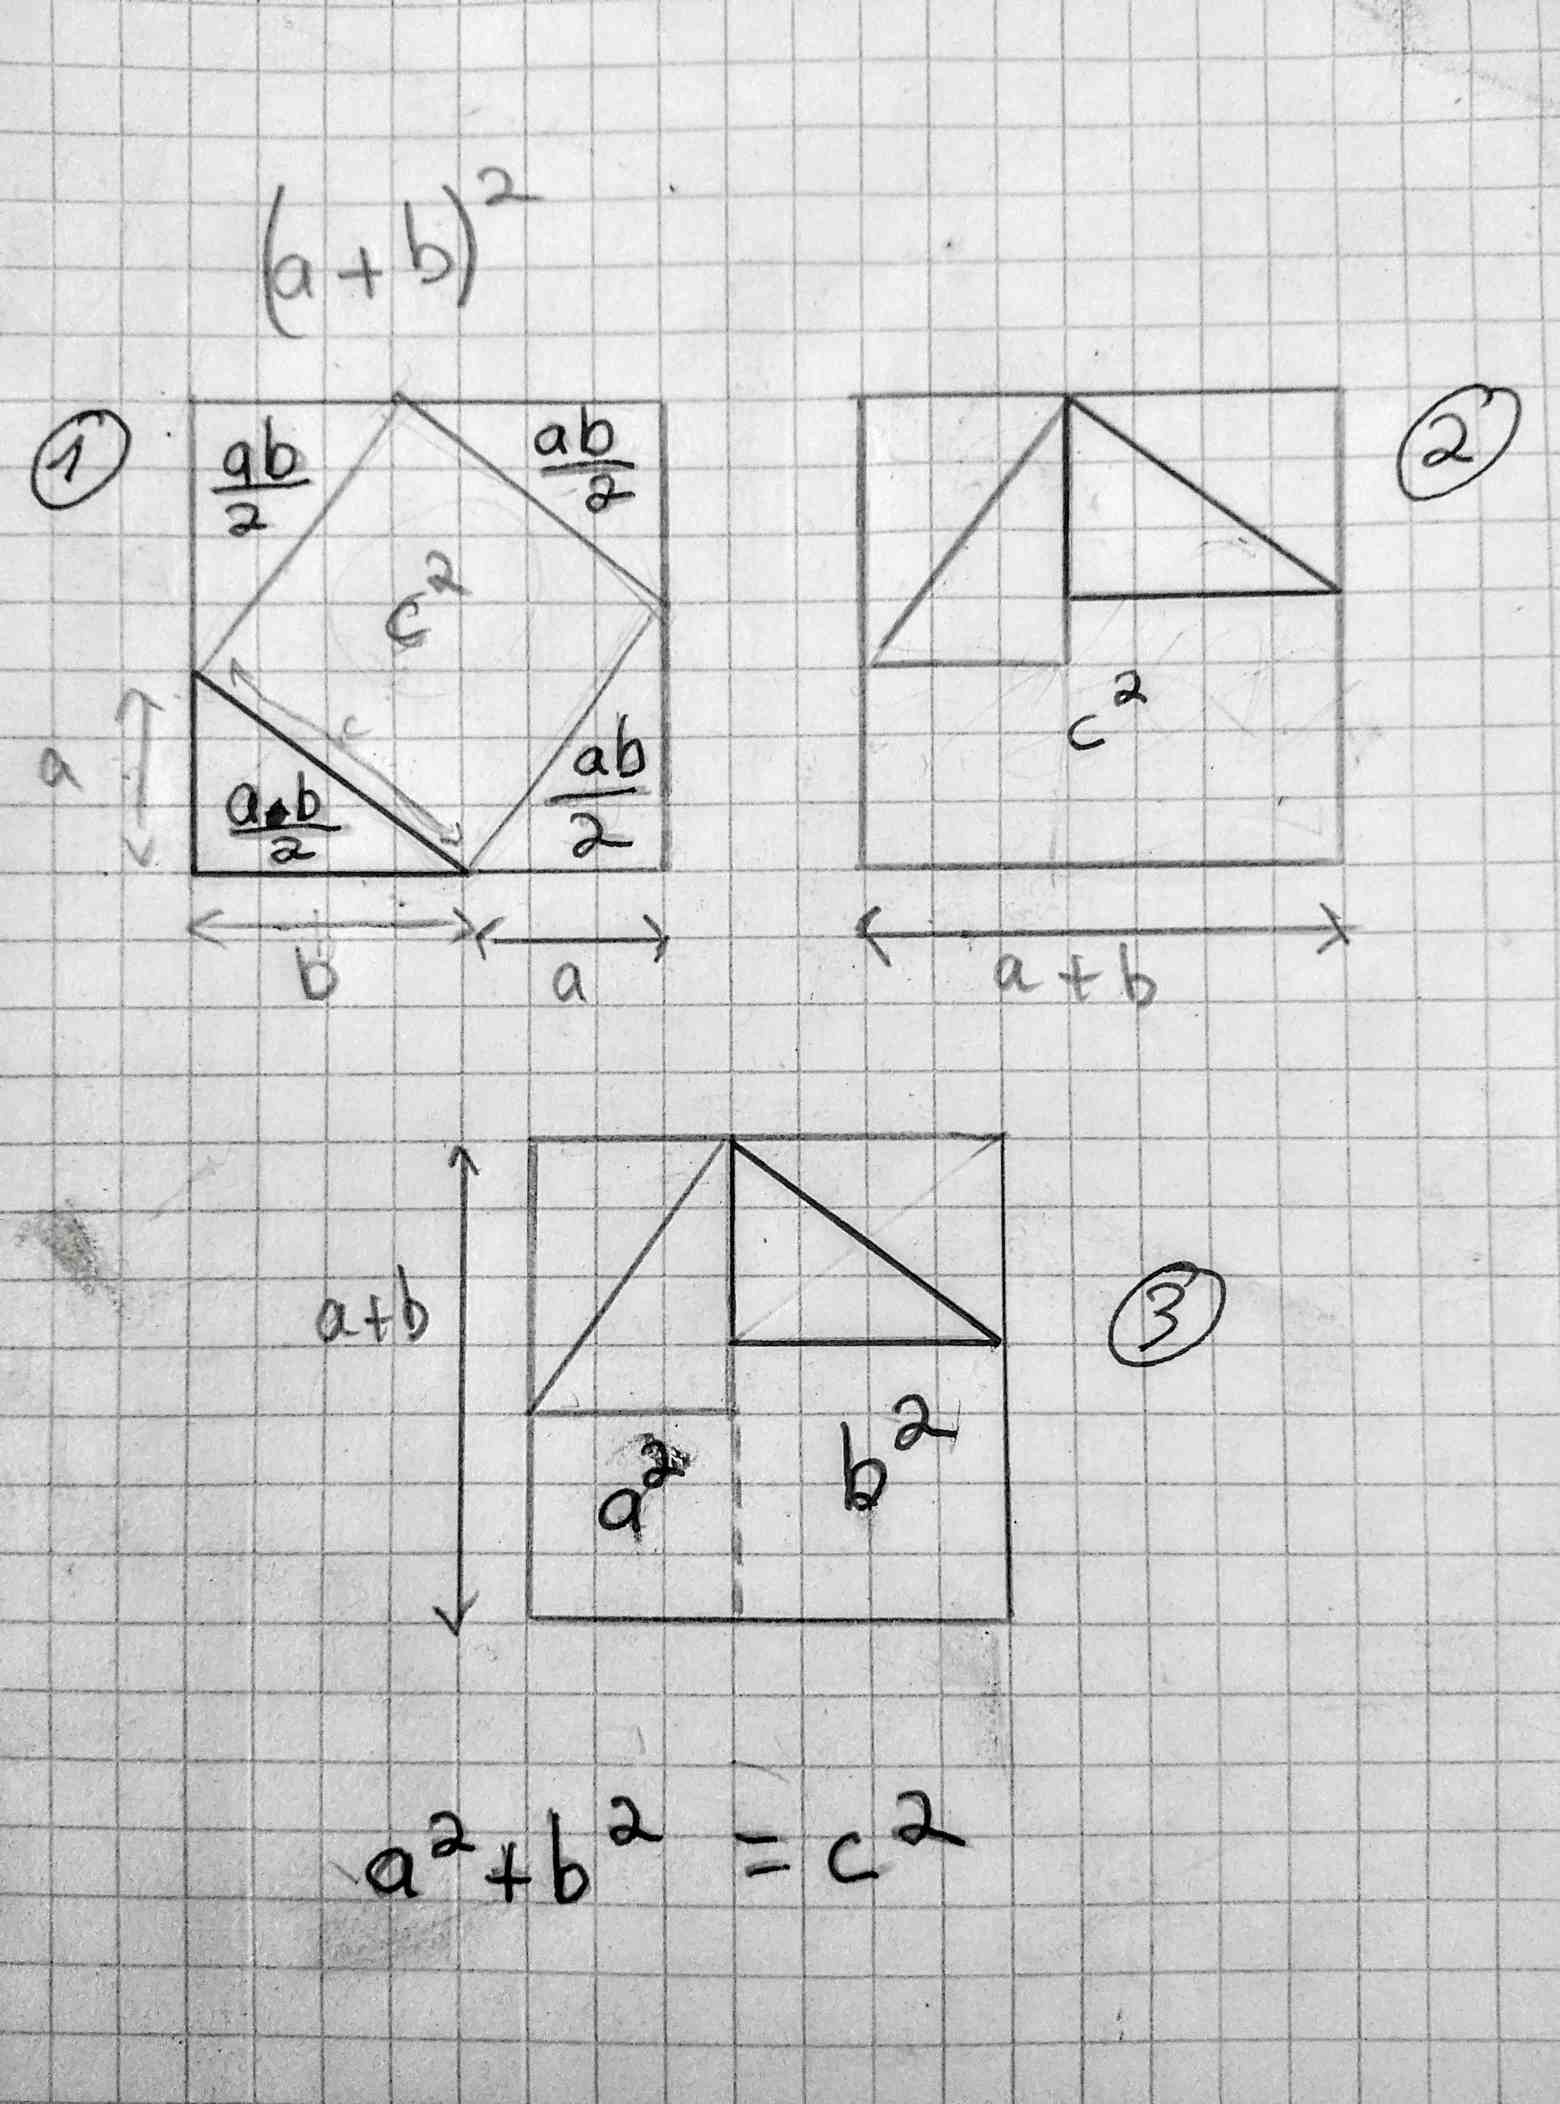 (a+b)²
① ab/2 ab/2 ②
c²
c
a a·b/2 ab/2 c²
b a a+b
a+b ③
a² b²
a²+b² = c²